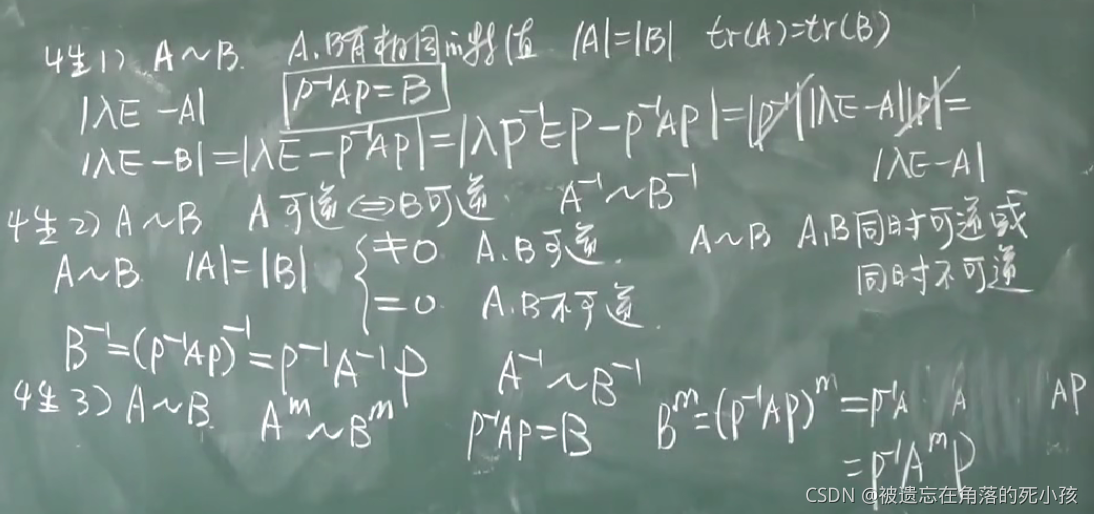 性1) A∼B. A.B有相同的特值 |A|=|B| tr(A)=tr(B)
|λE-A| P⁻¹AP=B
|λE-B|=|λE-P⁻¹AP|=|λP⁻¹EP-P⁻¹AP|=|P⁻¹||λE-A||P|=
|λE-A|
性2) A∼B A可逆⇔B可逆. A⁻¹∼B⁻¹
A∼B. |A|=|B| { ≠0 A.B可逆. A∼B A.B同时可逆或
=0. A.B不可逆. 同时不可逆
B⁻¹=(P⁻¹AP)⁻¹=P⁻¹A⁻¹P A⁻¹∼B⁻¹
性3) A∼B. Aᵐ∼Bᵐ P⁻¹AP=B Bᵐ=(P⁻¹AP)ᵐ=P⁻¹A A AP
=P⁻¹AᵐP
CSDN @被遗忘在角落的死小孩